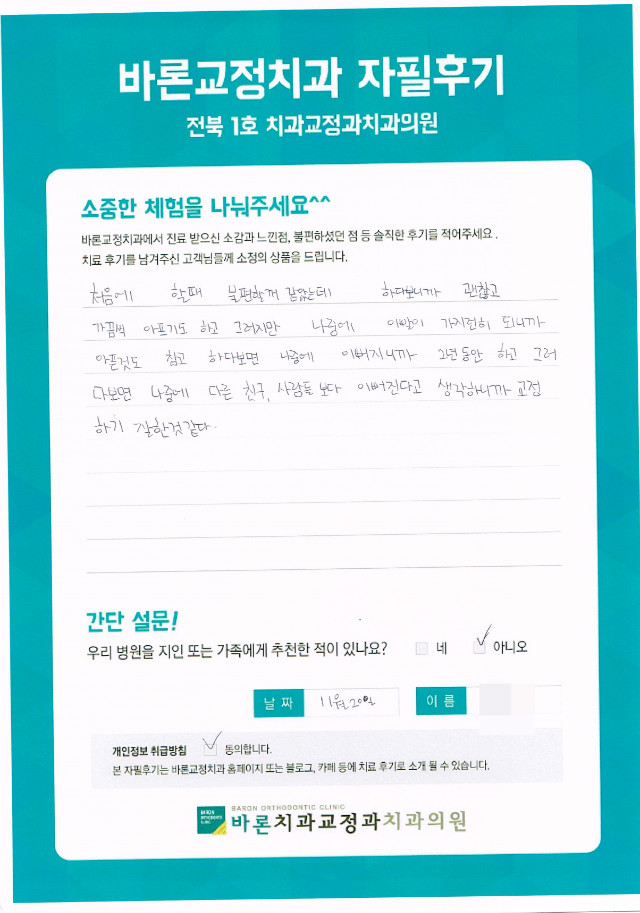 바론교정치과 자필후기
전북 1호 치과교정과치과의원
소중한 체험을 나눠주세요^^
바론교정치과에서 진료 받으신 소감과 느낀점, 불편하셨던 점 등 솔직한 후기를 적어주세요.
치료 후기를 남겨주신 고객님들께 소정의 상품을 드립니다.
처음에 할때 불편할꺼 같았는데 하다보니까 괜찮고
가끔씩 아프기도 하고 그러지만 나중에 이빨이 가지런히 되니까
아픈것도 참고 하다보면 나중에 이뻐지니까 2년동안 하고 그러
다보면 나중에 다른 친구, 사람들 보다 이뻐진다고 생각하니까 교정
하기 잘한것 같다.
간단 설문!
우리 병원을 지인 또는 가족에게 추천한 적이 있나요? 네 아니오
날 짜 11월 20일 이 름
개인정보 취급방침 동의합니다.
본 자필후기는 바론교정치과 홈페이지 또는 블로그, 카페 등에 치료 후기로 소개 될 수 있습니다.
BARON ORTHODONTIC CLINIC
바론치과교정과치과의원